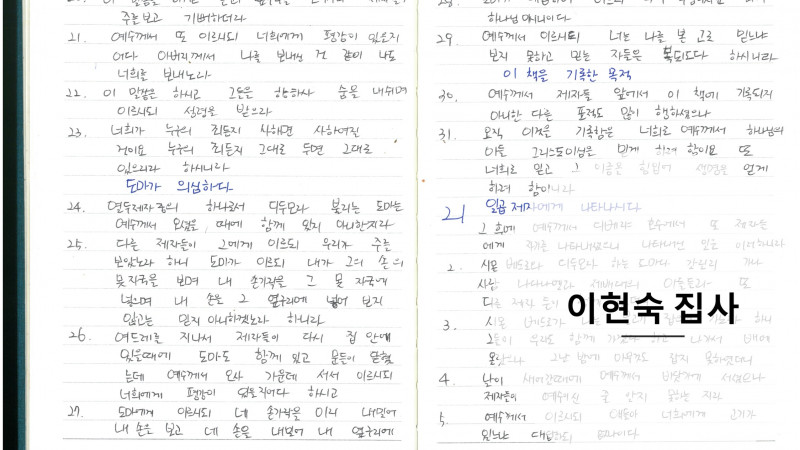 주를 보고 기뻐하더라
21. 예수께서 또 이르시되 너희에게 평강이 있을지
어다 아버지께서 나를 보내신 것 같이 나도
너희를 보내노라
22. 이 말씀을 하시고 그들을 향하사 숨을 내쉬며
이르시되 성령을 받으라
23. 너희가 누구의 죄든지 사하면 사하여질
것이요 누구의 죄든지 그대로 두면 그대로
있으리라 하시니라
도마가 의심하다
24. 열두제자 중의 하나로서 디두모라 불리는 도마는
예수께서 오셨을 때에 함께 있지 아니한지라
25. 다른 제자들이 그에게 이르되 우리가 주를
보았노라 하니 도마가 이르되 내가 그의 손의
못자국을 보며 내 손가락을 그 못 자국에
넣으며 내 손을 그 옆구리에 넣어 보지
않고는 믿지 아니하겠노라 하니라
26. 여드레를 지나서 제자들이 다시 집 안에
있을때에 도마도 함께 있고 문들이 닫혔
는데 예수께서 오사 가운데 서서 이르시되
너희에게 평강이 있을지어다 하시고
27. 도마에게 이르시되 네 손가락을 이리 내밀어
내 손을 보고 네 손을 내밀어 내 옆구리에
하나님 이니이다
29. 예수께서 이르시되 너는 나를 본 고로 믿느냐
보지 못하고 믿는 자들은 복되도다 하시니라
이 책을 기록한 목적
30. 예수께서 제자들 앞에서 이 책에 기록되지
아니한 다른 표적도 많이 행하셨으나
31. 오직 이것을 기록함은 너희로 예수께서 하나님의
아들 그리스도이심을 믿게 하려 함이요 또
너희로 믿고 그 이름을 힘입어 생명을 얻게
하려 함이니라
21 일곱 제자에게 나타나시다
그 후에 예수께서 디베랴 호수에서 또 제자들
에게
2. 시몬 베드로와 디두모라 하는 도마와 갈릴리 가나
사람 나다나엘과 세베대의 아들들과 또
다른 제자 둘이
이현숙 집사
3. 시몬 베드로가
그들이 우리도 함께 가겠다 하고 나가서 배에
올랐으나 그날 밤에 아무것도 잡지 못하였더니
4. 날이 새어갈때에 예수께서 바닷가에 서셨으나
제자들이 예수이신 줄 알지 못하는지라
5. 예수께서 이르시되 얘들아 너희에게 고기가
있느냐 대답하되 없나이다